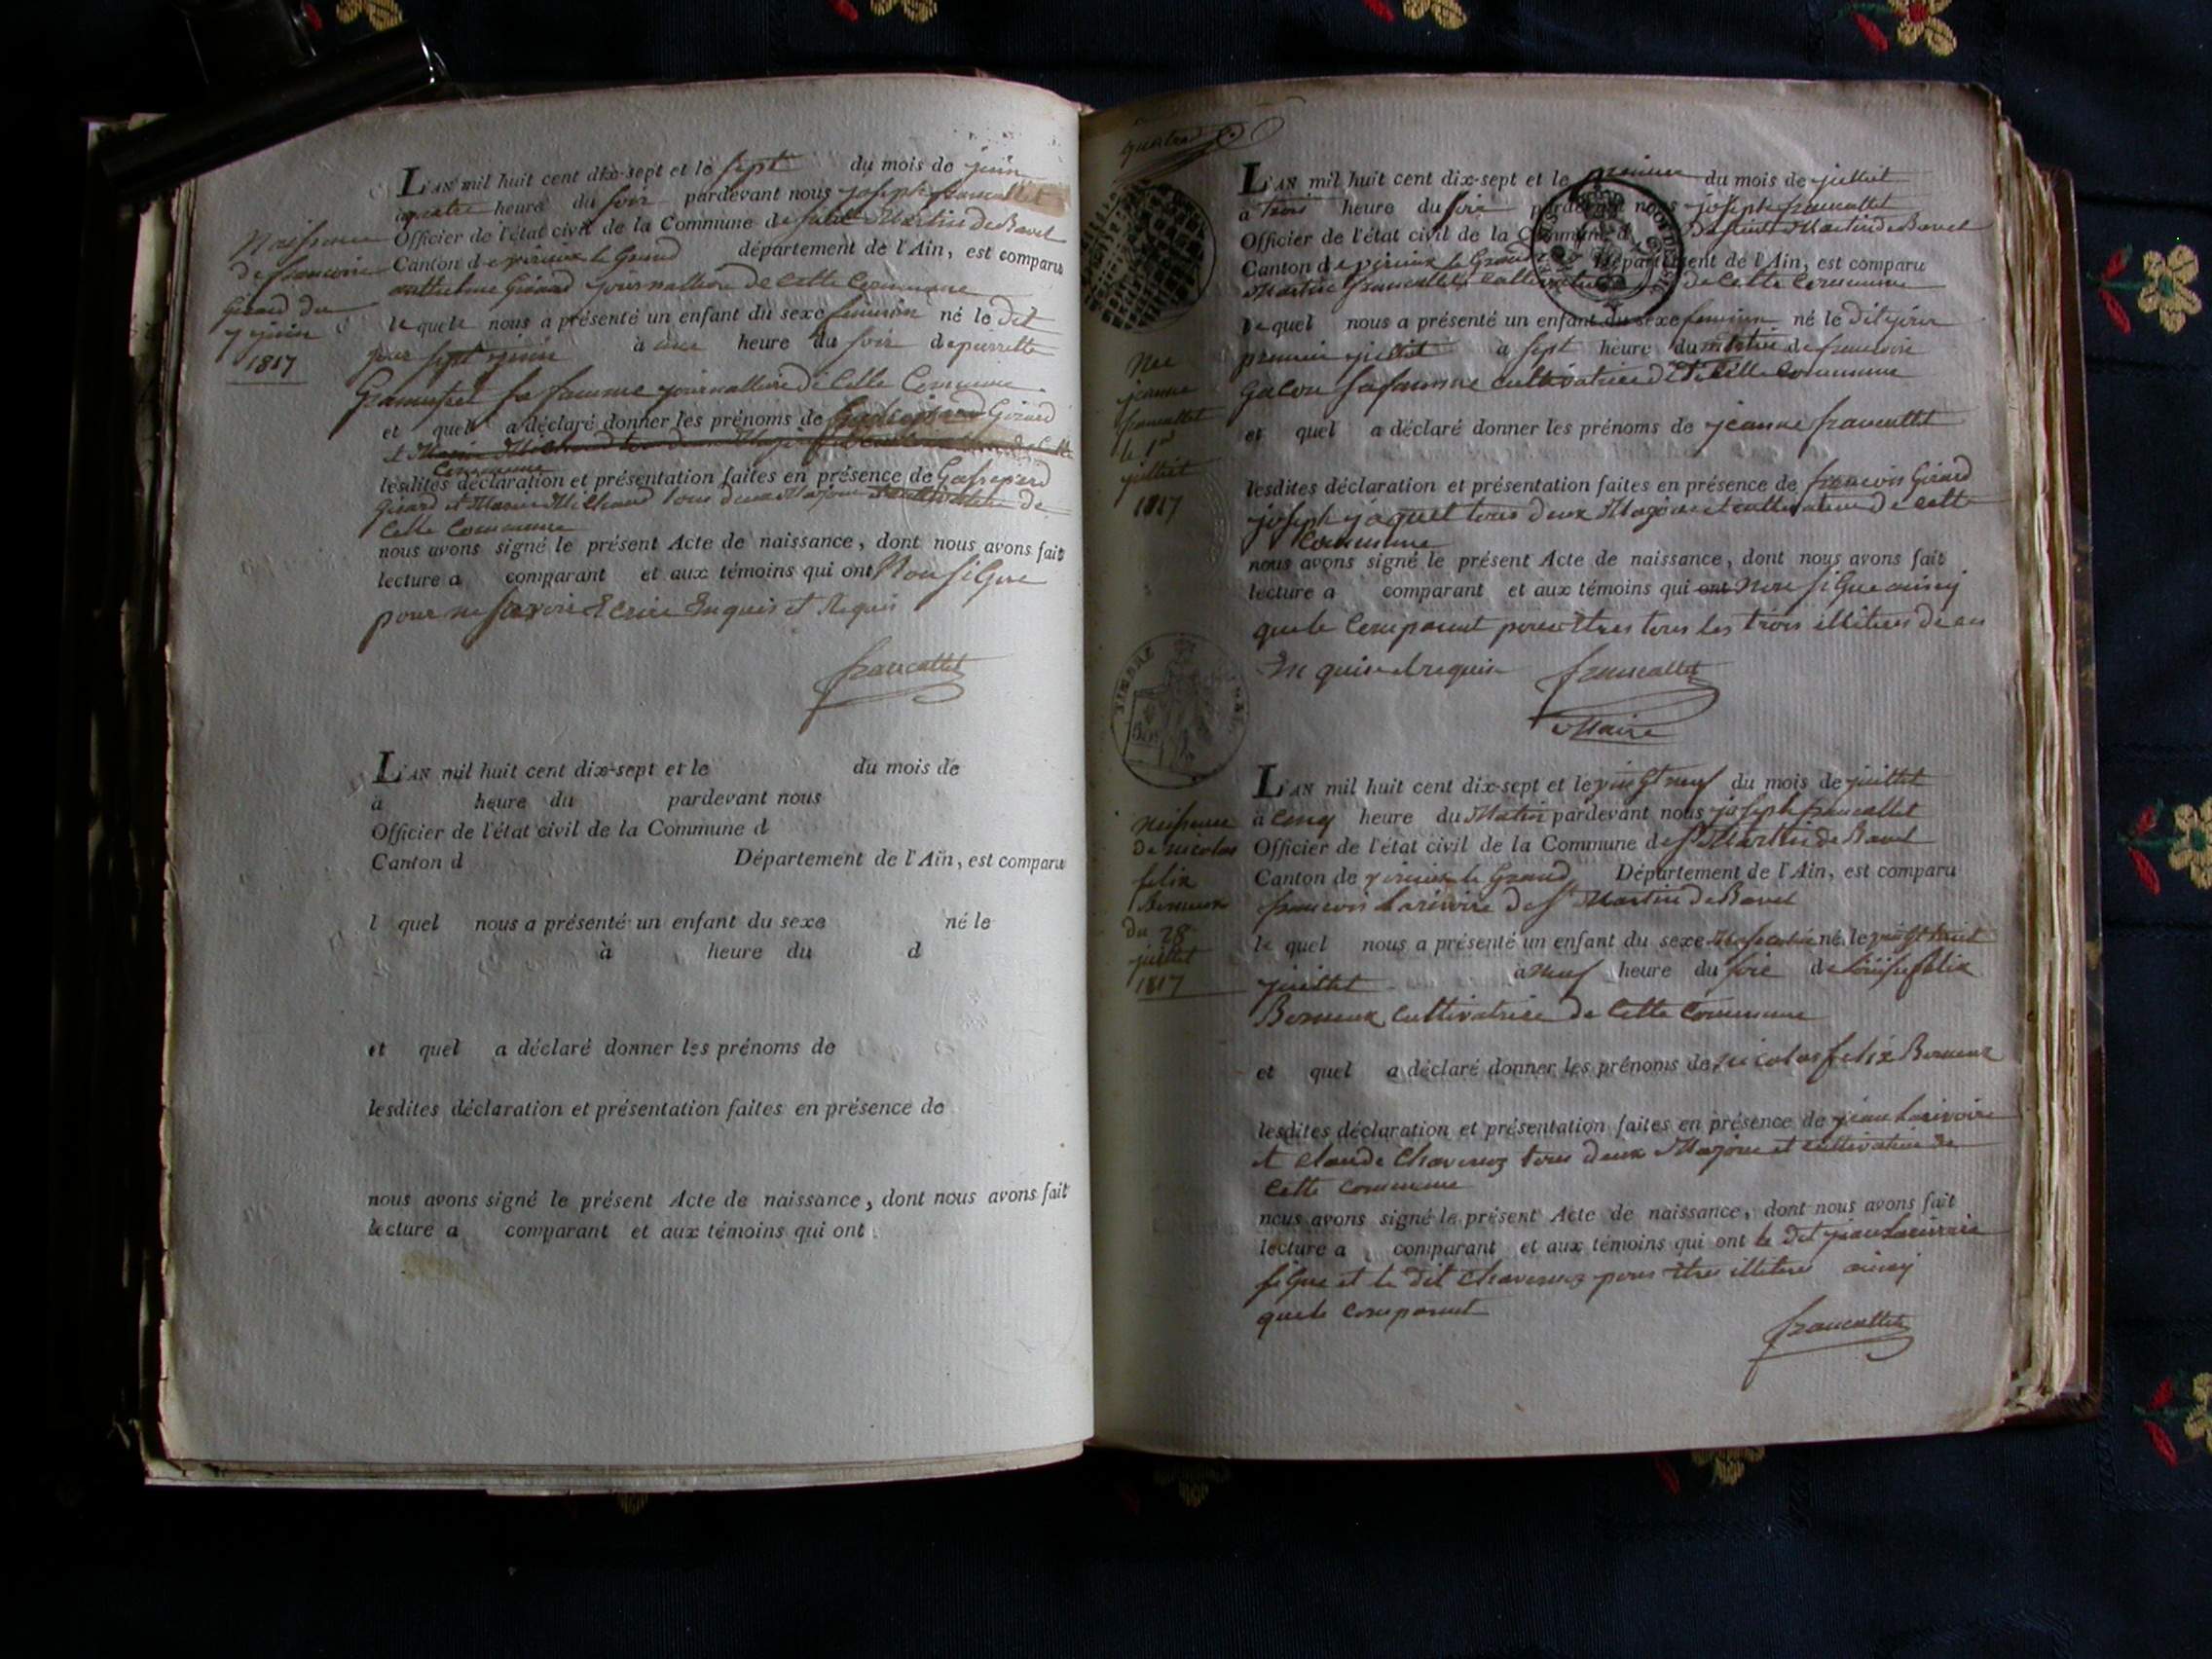 L'AN mil huit cent dix-sept et le sept du mois de juin
a quatre heure du soir pardevant nous joseph francallet
Officier de l'état civil de la Commune de saint Martin de Bavel
Canton de virieux le Grand département de l'Ain, est comparu
anthelme Girard journallier de Cette Commune
le quel nous a présenté un enfant du sexe feminin né le dit
jour sept juin à une heure du soir de pierrette
sa femme journalliere de Cette Commune
et quel a déclaré donner les prénoms de Girard
Commune
lesdites déclaration et présentation faites en présence de Gaspard
Girard et Marie Michaud tous deux Majeur de
Cette Commune
nous avons signé le présent Acte de naissance, dont nous avons fait
lecture a comparant et aux témoins qui ont Non signe
pour ne savoir Ecrire Enquis et Requis
francallet
Naissance
de francoise
Girard du
7 juin
1817
L'AN mil huit cent dix-sept et le du mois de
à heure du pardevant nous
Officier de l'état civil de la Commune d
Canton d Département de l'Ain, est comparu
l quel nous a présenté un enfant du sexe né le
à heure du d
et quel a déclaré donner les prénoms de
lesdites déclaration et présentation faites en présence de
nous avons signé le présent Acte de naissance, dont nous avons fait
lecture a comparant et aux témoins qui ont
L'AN mil huit cent dix-sept et le premier du mois de juillet
a trois heure du soir pardevant nous joseph francallet
Officier de l'état civil de la Commune d De saint Martin de Bavel
Canton de virieux le Grand Département de l'Ain, est comparu
Martin francallet Cultivateur de Cette Commune
le quel nous a présenté un enfant du sexe feminin né le dit jour
premier juillet à sept heure du matin de francoise
Gacon sa famme cultivatrice de Cette Commune
et quel a déclaré donner les prénoms de jeanne francallet
lesdites déclaration et présentation faites en présence de francois Girard
joseph jaquet tous deux Majeur et cultivateur de cette
Commune
nous avons signé le présent Acte de naissance, dont nous avons fait
lecture a comparant et aux témoins qui ont Non signe ainsy
que le Comparant pour être tous les trois illiteré de ce
Enquis et requis francallet
Maire
Née
jeanne
francallet
le 1er
juillet
1817
L'AN mil huit cent dix-sept et le vingt neuf du mois de juillet
à Cinq heure du Matin pardevant nous joseph francallet
Officier de l'état civil de la Commune de St Martin de Bavel
Canton de virieux le Grand Département de l'Ain, est comparu
francois Larivoire de St Martin de Bavel
le quel nous a présenté un enfant du sexe Masculin né le vingt huit
juillet à Neuf heure du soir de Louise felix
Bonneux Cultivatrice de Cette Commune
et quel a déclaré donner les prénoms de Nicolas felix Bonneux
lesdites déclaration et présentation faites en présence de jean Larivoire
et Claude Chavernoz tous deux Majeur et cultivateur de
Cette commune
nous avons signé le présent Acte de naissance, dont nous avons fait
lecture a comparant et aux témoins qui ont le Dit jean Larivoire
signe et le Dit Chavernoz pour être illiteré ainsy
que le Comparant
francallet
Naissance
de Nicolas
felix
Bonneux
du 28
juillet
1817